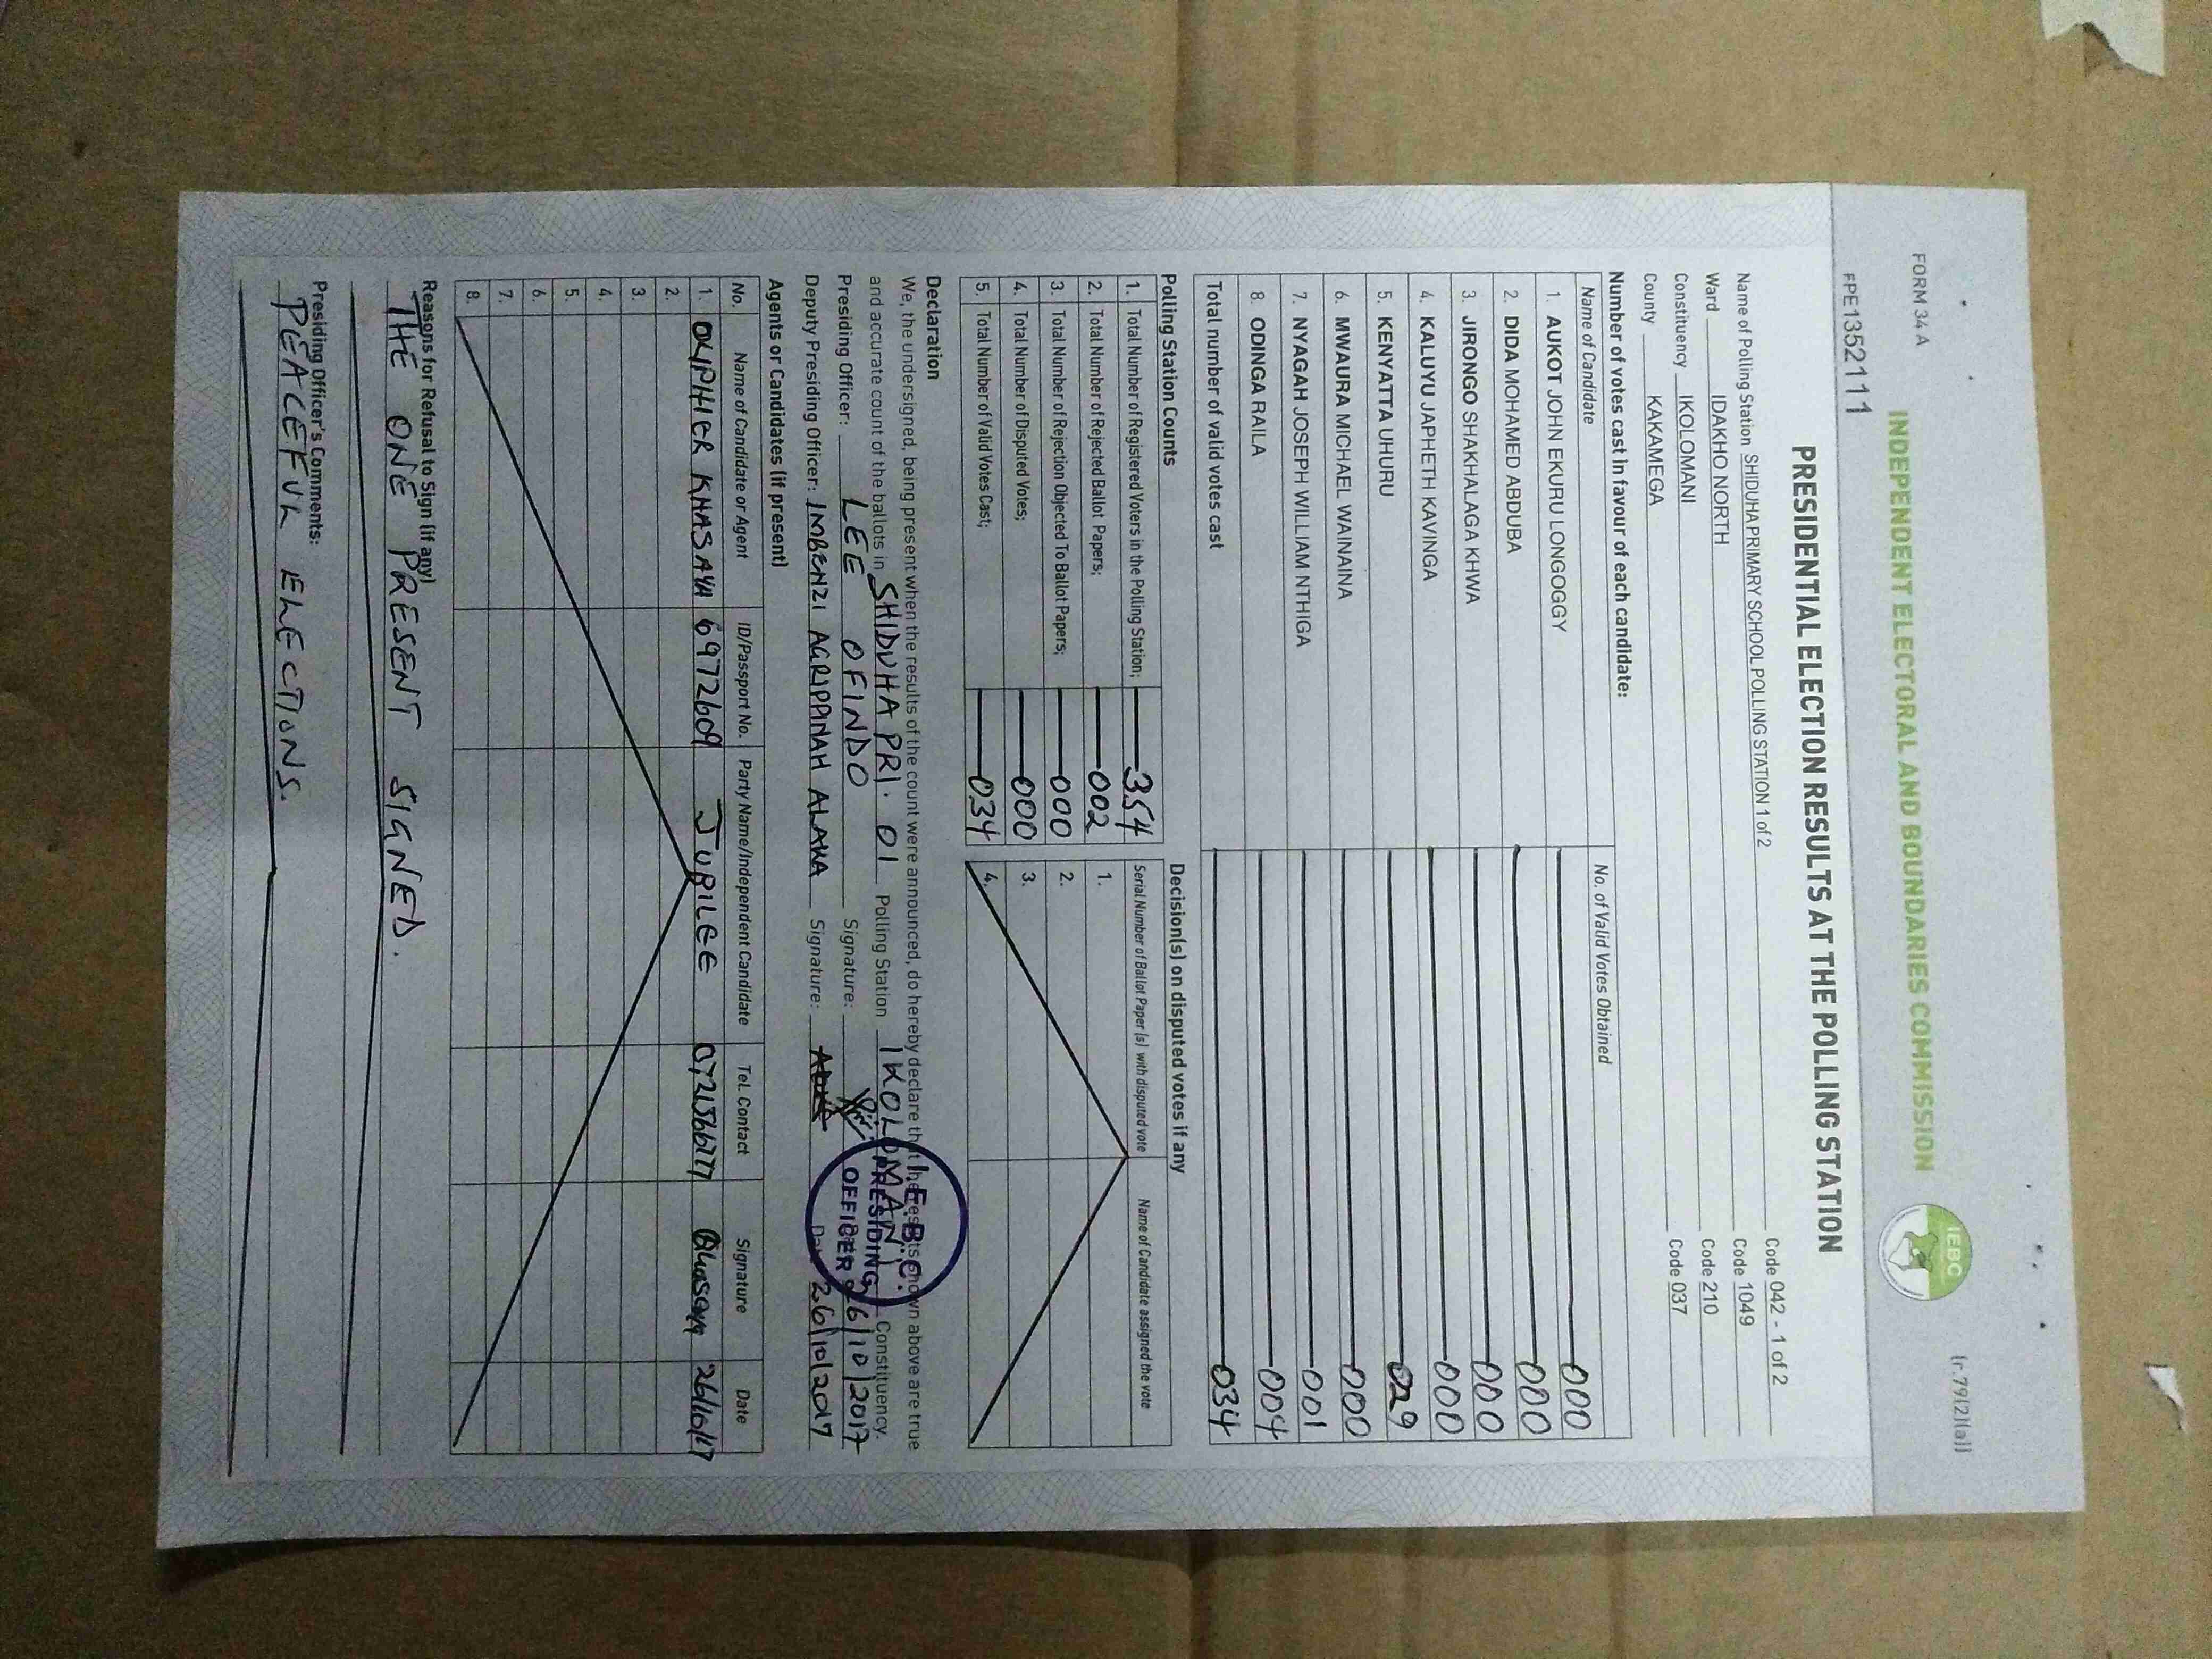 FORM 34 A
(r.79(2)(a))
INDEPENDENT ELECTORAL AND BOUNDARIES COMMISSION
IEBC
FPE1352111
PRESIDENTIAL ELECTION RESULTS AT THE POLLING STATION
Name of Polling Station SHIDUHA PRIMARY SCHOOL POLLING STATION 1 of 2 Code 042 - 1 of 2
Ward IDAKHO NORTH Code 1049
Constituency IKOLOMANI Code 210
County KAKAMEGA Code 037
Number of votes cast in favour of each candidate:
Name of Candidate No. of Valid Votes Obtained
1. AUKOT JOHN EKURU LONGOGGY 000
2. DIDA MOHAMED ABDUBA 000
3. JIRONGO SHAKHALAGA KHWA 000
4. KALUYU JAPHETH KAVINGA 000
5. KENYATTA UHURU 029
6. MWAURA MICHAEL WAINAINA 000
7. NYAGAH JOSEPH WILLIAM NTHIGA 001
8. ODINGA RAILA 004
Total number of valid votes cast 034
Polling Station Counts
1. Total Number of Registered Voters in the Polling Station; 354
2. Total Number of Rejected Ballot Papers; 002
3. Total Number of Rejection Objected To Ballot Papers; 000
4. Total Number of Disputed Votes; 000
5. Total Number of Valid Votes Cast; 034
Decision(s) on disputed votes if any
Serial Number of Ballot Paper (s) with disputed vote Name of Candidate assigned the vote
1.
2.
3.
4.
Declaration
We, the undersigned, being present when the results of the count were announced, do hereby declare that the results shown above are true
and accurate count of the ballots in SHIDUHA PRI. 01 Polling Station IKOLOMANI Constituency.
Presiding Officer: LEE OFINDO Signature: 26/10/2017
Deputy Presiding Officer: IMBENZI AGRIPPINAH ALAKA Signature: Date 26/10/2017
I.E.B.C.
PRESIDING
OFFICER
Agents or Candidates (if present)
No. Name of Candidate or Agent ID/Passport No. Party Name/Independent Candidate Tel. Contact Signature Date
1. KHASAYA 6972609 JUBILEE 26/10/17
2.
3.
4.
5.
6.
7.
8.
Reasons for Refusal to Sign (if any)
THE ONE PRESENT SIGNED.
Presiding Officer's Comments:
PEACEFUL ELECTIONS.